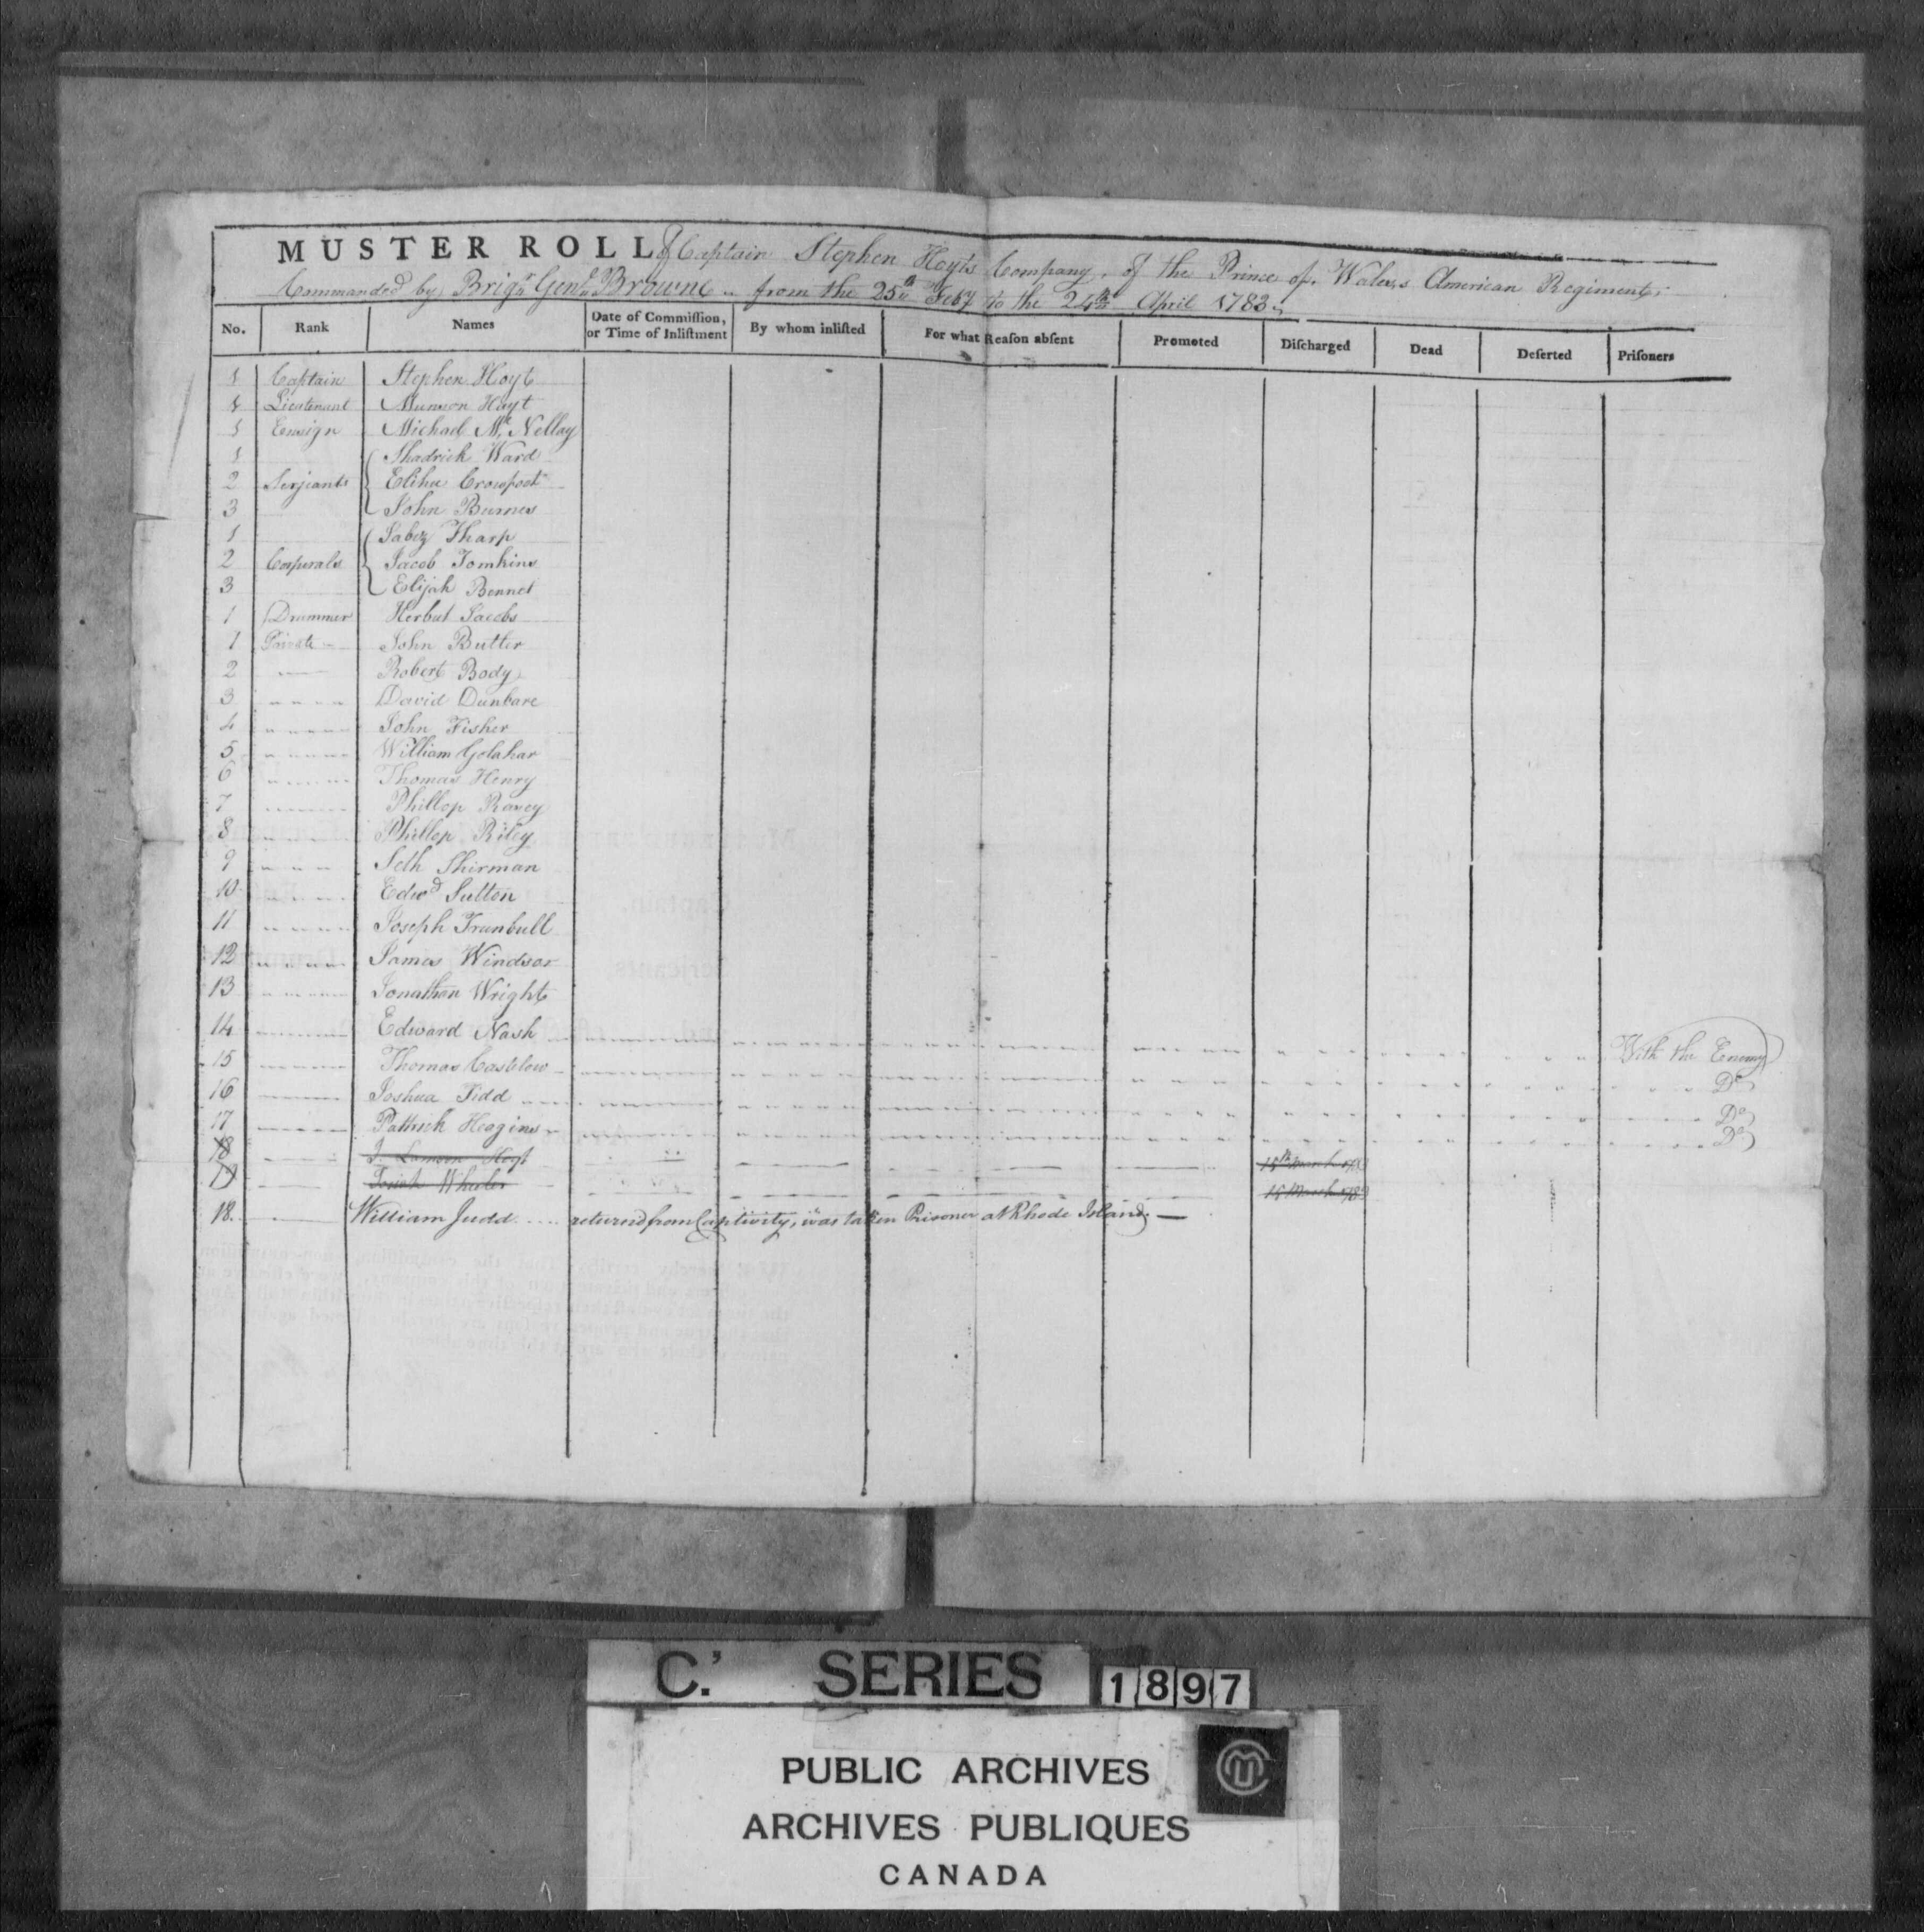 MUSTER ROLL of Captain Stephen Hoyts Company, of the Prince of Wales,s American Regiment;
Commanded by Brigr Genl Browne .. from the 25th Feby to the 24th April 1783
No. Rank Names Date of Commiſſion, or Time of Inliſtment By whom inliſted For what Reaſon abſent Promoted Diſcharged Dead Deſerted Priſoners
1 Captain Stephen Hoyt
1 Lieutenant Munson Hoyt
1 Ensign Michael Mc Nellay
1 Shadrick Ward
2 Serjeants Elihu Crowfoot
3 John Burnes
1 Jabez Tharp
2 Corporals Jacob Tomkins
3 Elijah Bennet
1 Drummer Herbut Jacobs
1 Private John Butter
2 Robert Body
3 David Dunbare
4 John Fisher
5 William Golahar
6 Thomas Henry
7 Phillop Ravey
8 Phillop Riley
9 Seth Shirman
10 Edwd Sutton
11 Joseph Trunbull
12 James Windsor
13 Jonathan Wright
14 Edward Nash With the Enemy
15 Thomas Castelow Do
16 Joshua Tidd Do
17 Pattrick Heagins Do
18 J. Lamson Hoyt 15th March 1783
19 Josiah Wheeler 15 March 1783
18. William Judd .... returnd from Captivity, was taken Prisoner at Rhode Island. —
C.' SERIES 1897
PUBLIC ARCHIVES
ARCHIVES PUBLIQUES
CANADA